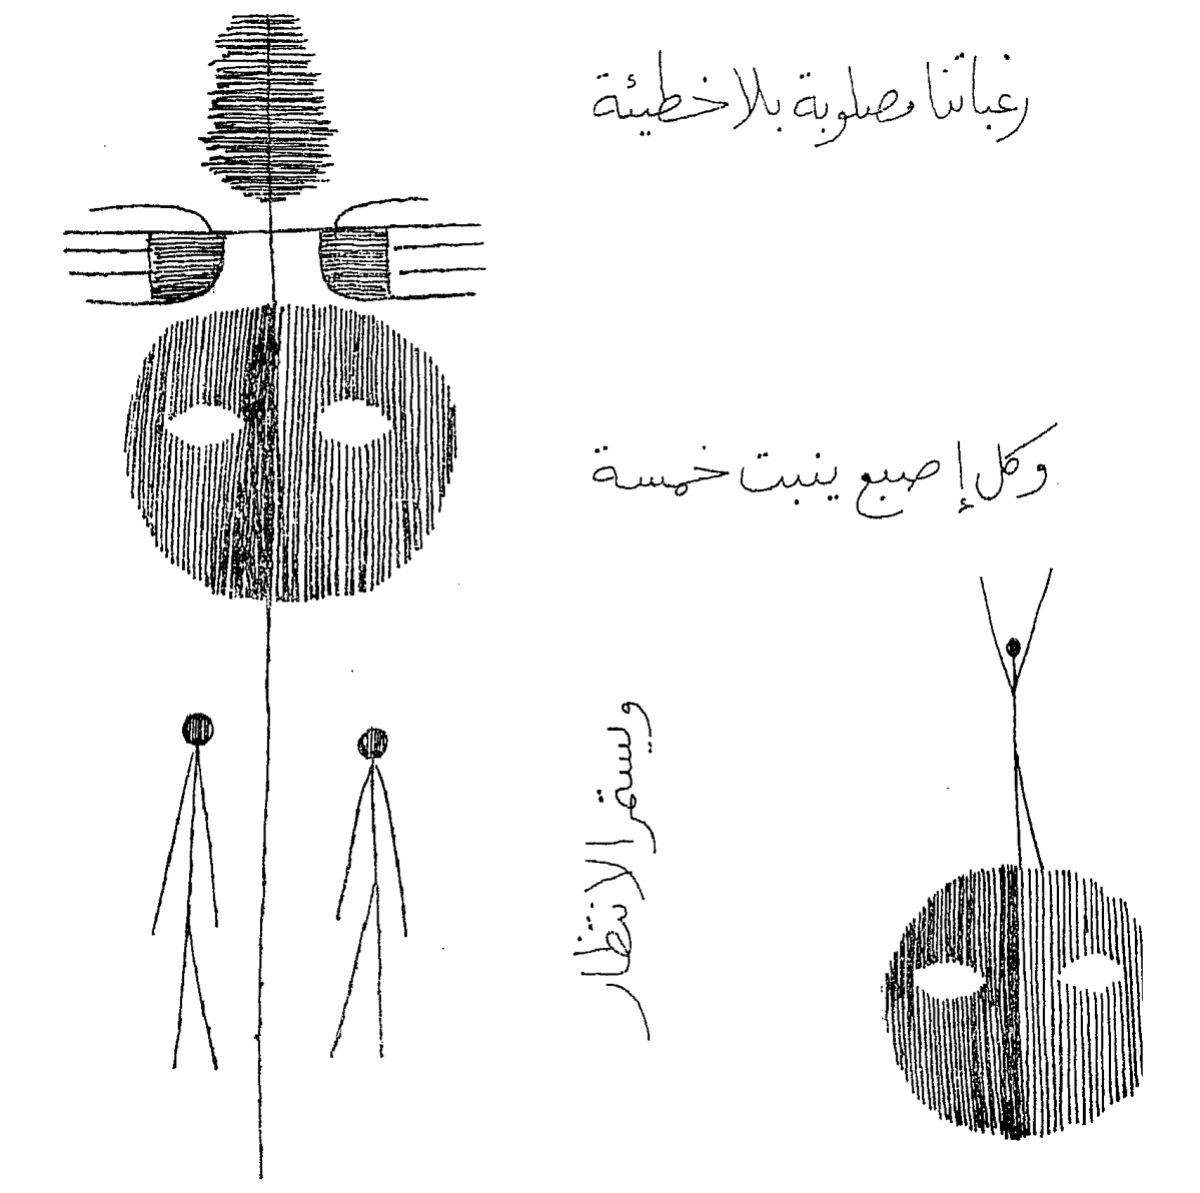 رغباتنا مصلوبة بلا خطيئة
وكل إصبع ينبت خمسة
ويستمر الانتظار